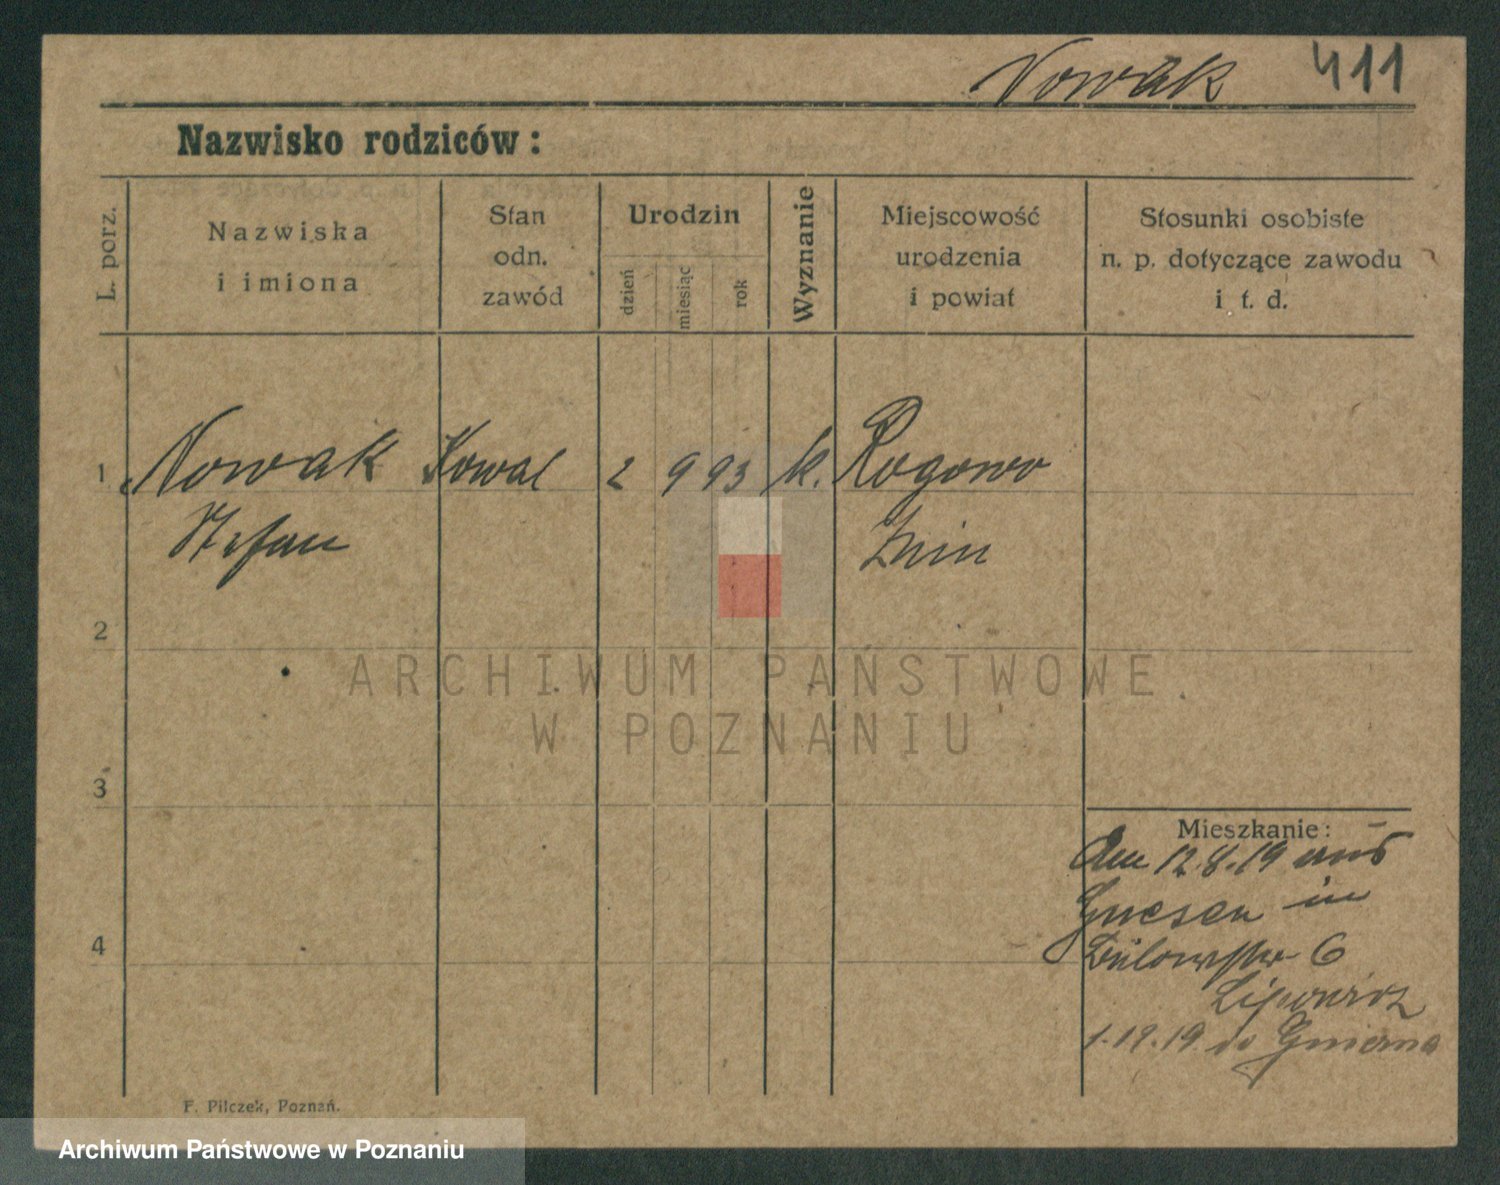 Nowak 411
Nazwisko rodziców:
L. porz.
Nazwiska
i imiona
Stan
odn.
zawód
Urodzin
dzień
miesiąc
rok
Wyznanie
Miejscowość
urodzenia
i powiat
Stosunki osobiste
n. p. dotyczące zawodu
i t. d.
1 Nowak Kowal 2 9 93 k. Rogowo
Stefan Znin
2
3
4
Mieszkanie:
Am 12.8.19 aus
Gnesen in
6
1.12.19 do Gniezna
ARCHIWUM PAŃSTWOWE
W POZNANIU
F. Pilczek, Poznań.
Archiwum Państwowe w Poznaniu